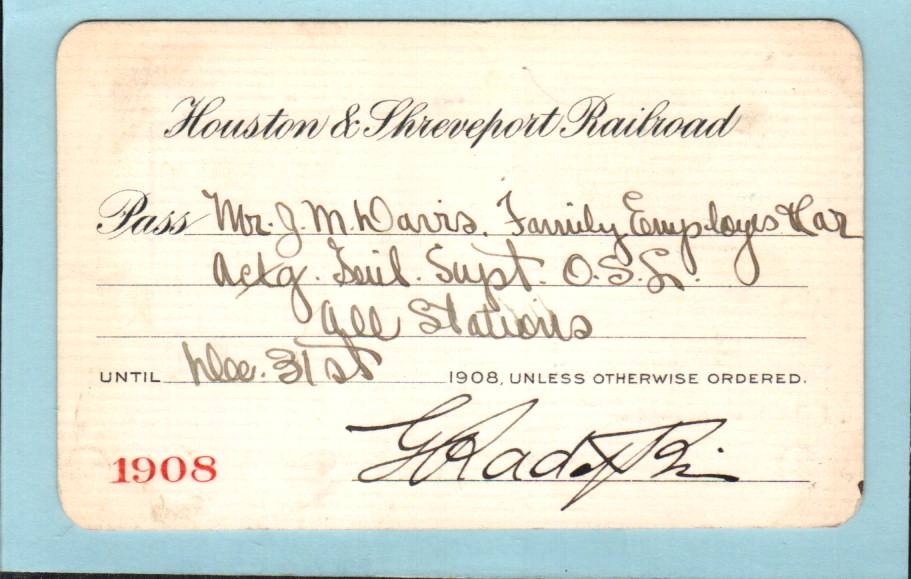 Houston & Shreveport Railroad
Pass Mr. J. M. Davis, Family, Employes & Car
Actg. Genl. Supt. O.S.L.
All Stations
UNTIL Dec. 31st 1908, UNLESS OTHERWISE ORDERED.
1908